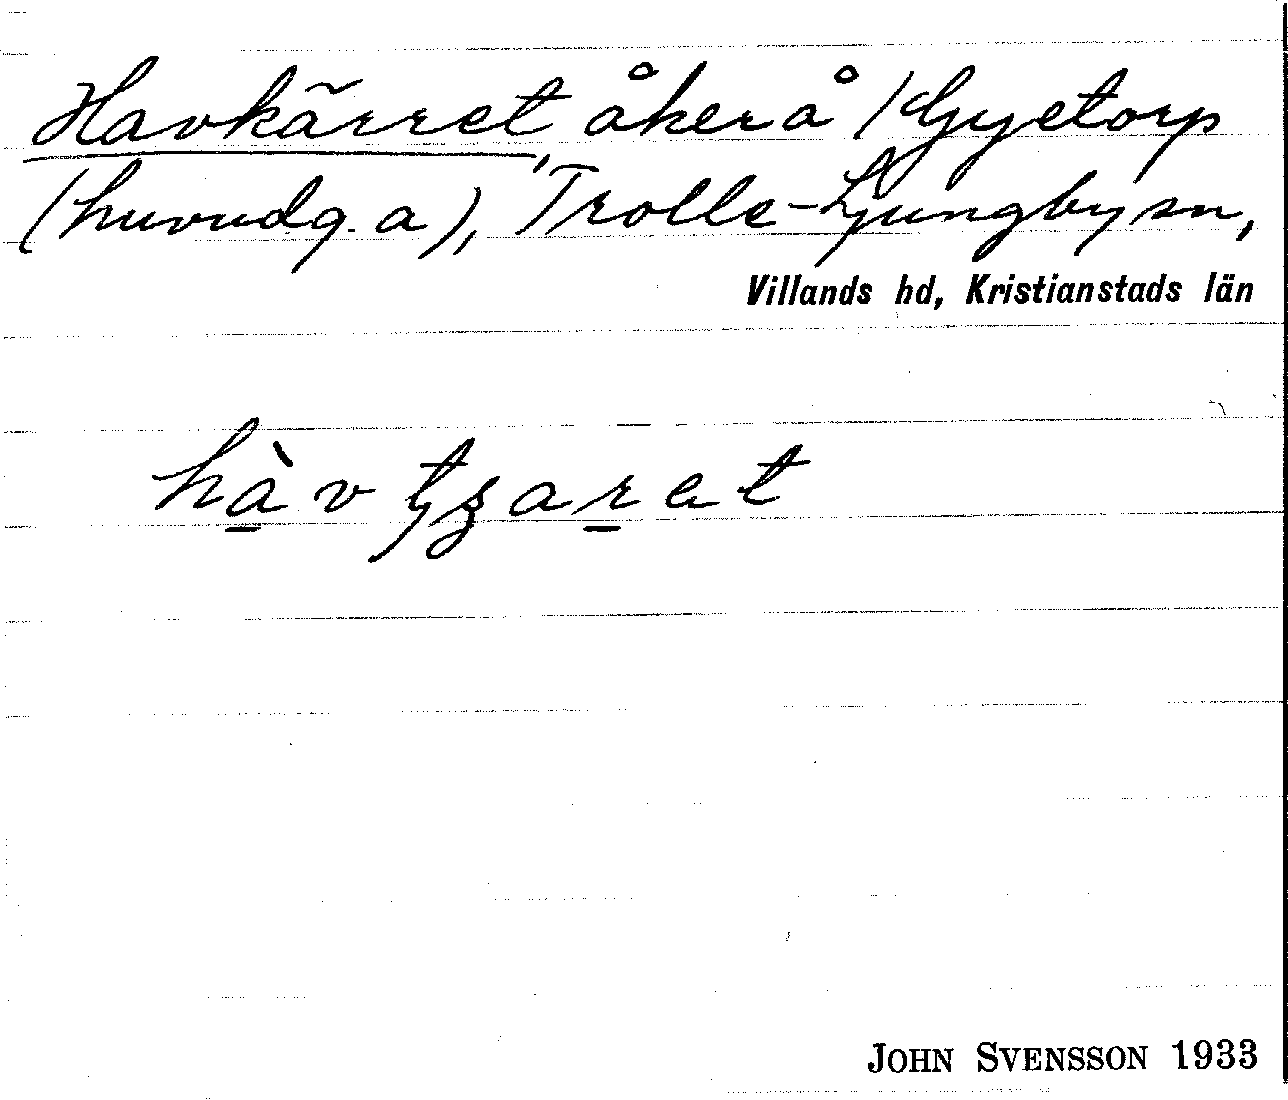 Havkärret, åker å /Gyetorp
(huvudg. a), Trolle-Ljungby sn,
Villands hd, Kristianstads län
hàv tʒaret
JOHN SVENSSON 1933